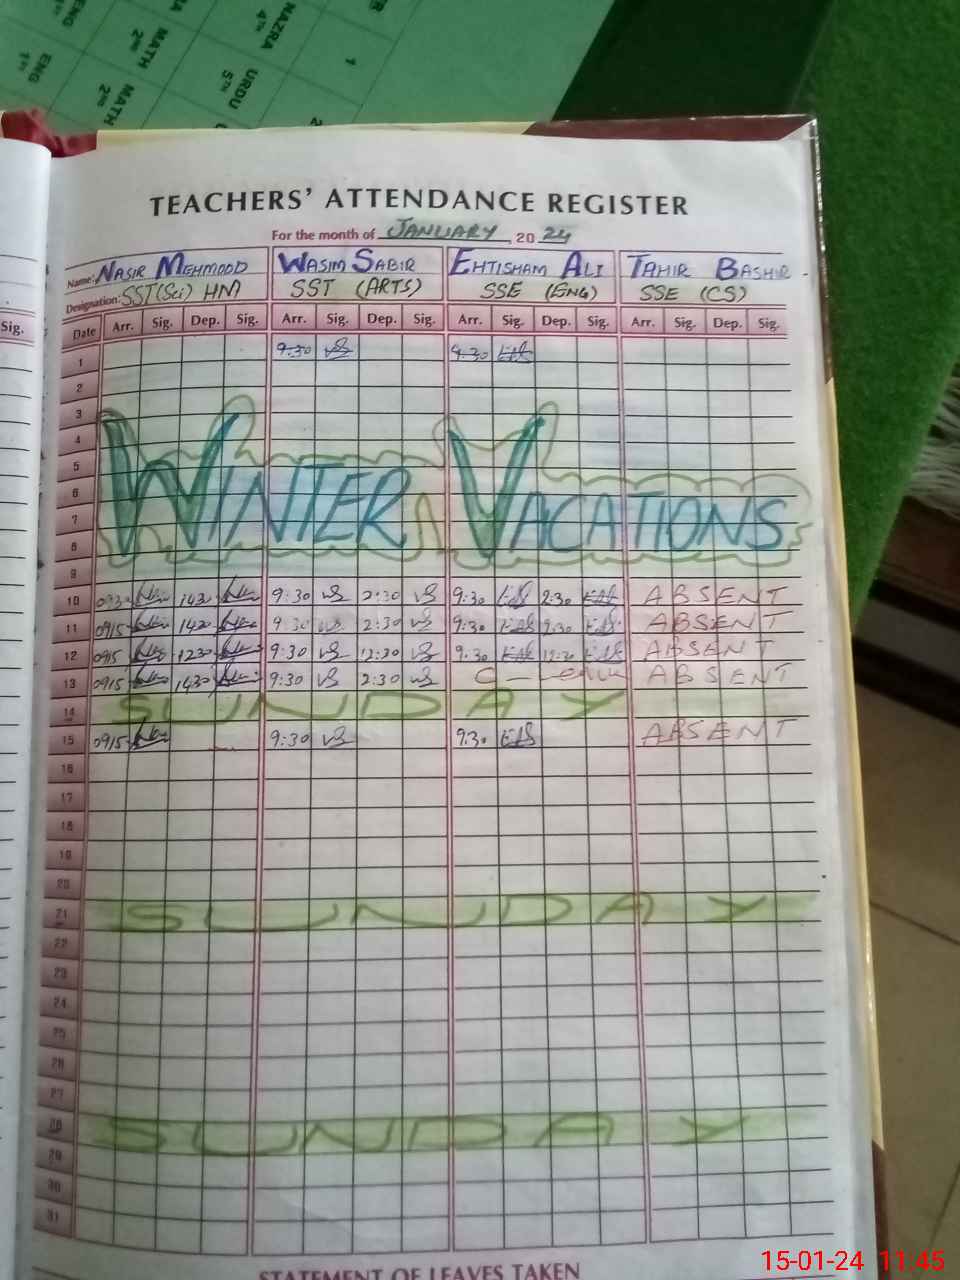 ENG 4TH NAZRA
ENG 1ST MATH 2ND URDU 5TH 1
MATH 2ND 2
TEACHERS' ATTENDANCE REGISTER
For the month of JANUARY, 20 24
Name: NASIR MEHMOOD WASIM SABIR EHTISHAM ALI TAHIR BASHIR
Designation: SST(Sci) HM SST (ARTS) SSE (ENG) SSE (CS)
Sig. Date Arr. Sig. Dep. Sig. Arr. Sig. Dep. Sig. Arr. Sig. Dep. Sig. Arr. Sig. Dep. Sig.
1 9:30 9:30
2
3
4
5
WINTER VACATIONS
6
7
8
9
10 0930 1430 9:30 2:30 9:30 2:30 ABSENT
11 0915 1430 9:30 2:30 9:30 2:30 ABSENT
12 0915 1230 9:30 12:30 9:30 12:30 ABSENT
13 0915 1430 9:30 2:30 C-Leave ABSENT
14 SUNDAY
15 0915 9:30 9:30 ABSENT
16
17
18
19
20
21 SUNDAY
22
23
24
25
26
27
28 SUNDAY
29
30
31
STATEMENT OF LEAVES TAKEN
15-01-24 11:45